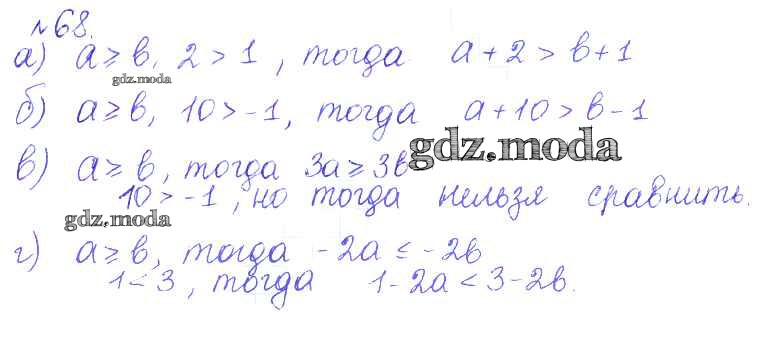 №68.
а) a ≥ b, 2 > 1, тогда a + 2 > b + 1
gdz.moda
б) a ≥ b, 10 > -1, тогда a + 10 > b - 1
gdz.moda
в) a ≥ b, тогда 3a ≥ 3b
10 > -1, но тогда нельзя сравнить.
gdz.moda
г) a ≥ b, тогда -2a ≤ -2b
1 < 3, тогда 1 - 2a < 3 - 2b.